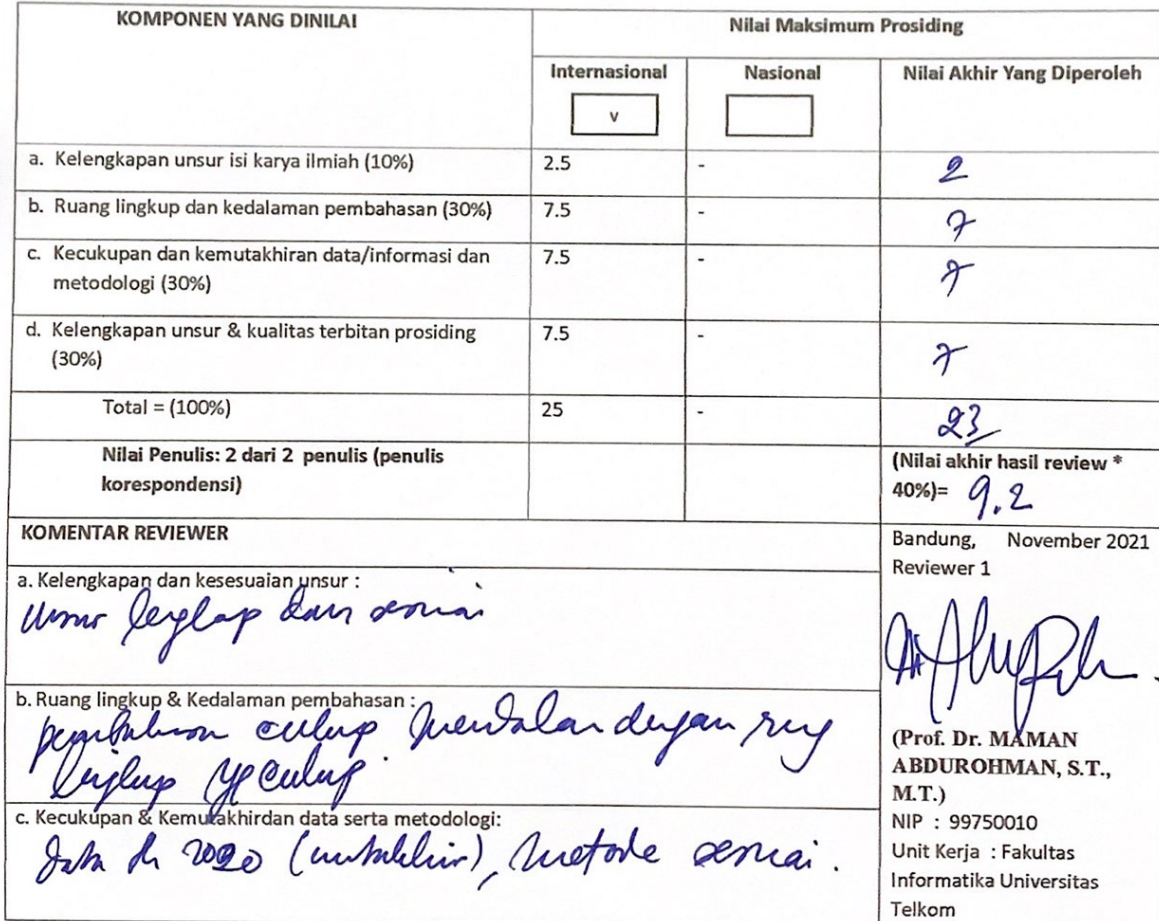 KOMPONEN YANG DINILAI
Nilai Maksimum Prosiding
Internasional
Nasional
Nilai Akhir Yang Diperoleh
v
a. Kelengkapan unsur isi karya ilmiah (10%) 2.5 - 2
b. Ruang lingkup dan kedalaman pembahasan (30%) 7.5 - 7
c. Kecukupan dan kemutakhiran data/informasi dan 7.5 - 7
metodologi (30%)
d. Kelengkapan unsur & kualitas terbitan prosiding 7.5 - 7
(30%)
Total = (100%) 25 - 23
Nilai Penulis: 2 dari 2 penulis (penulis
korespondensi)
(Nilai akhir hasil review *
40%)= 9.2
KOMENTAR REVIEWER
a. Kelengkapan dan kesesuaian unsur :
unsur lengkap dan sesuai
b. Ruang lingkup & Kedalaman pembahasan :
pembahasan cukup mendalam dengan ruang
lingkup yg cukup.
c. Kecukupan & Kemutakhirdan data serta metodologi:
data 2020 (mutakhir), metode sesuai.
Bandung, November 2021
Reviewer 1
(Prof. Dr. MAMAN
ABDUROHMAN, S.T.,
M.T.)
NIP : 99750010
Unit Kerja : Fakultas
Informatika Universitas
Telkom